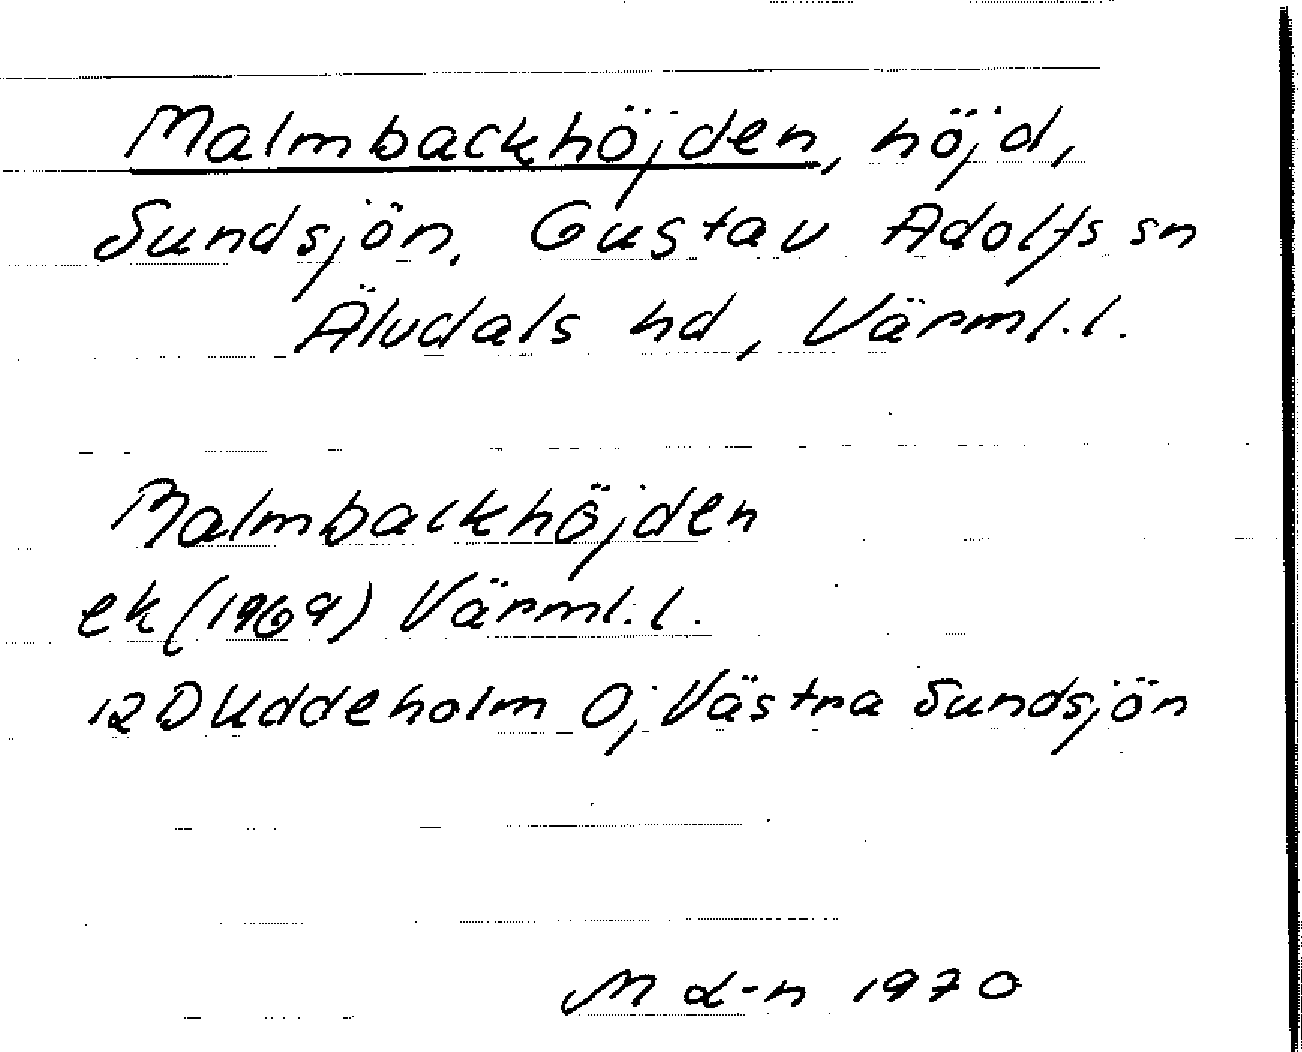 Malmbackhöjden, höjd,
Sundsjön. Gustav Adolfs sn
Älvdals hd, Värml.l.
Malmbackhöjden
ek (1969) Värml.l.
12D Uddeholm 0j Västra Sundsjön
1970